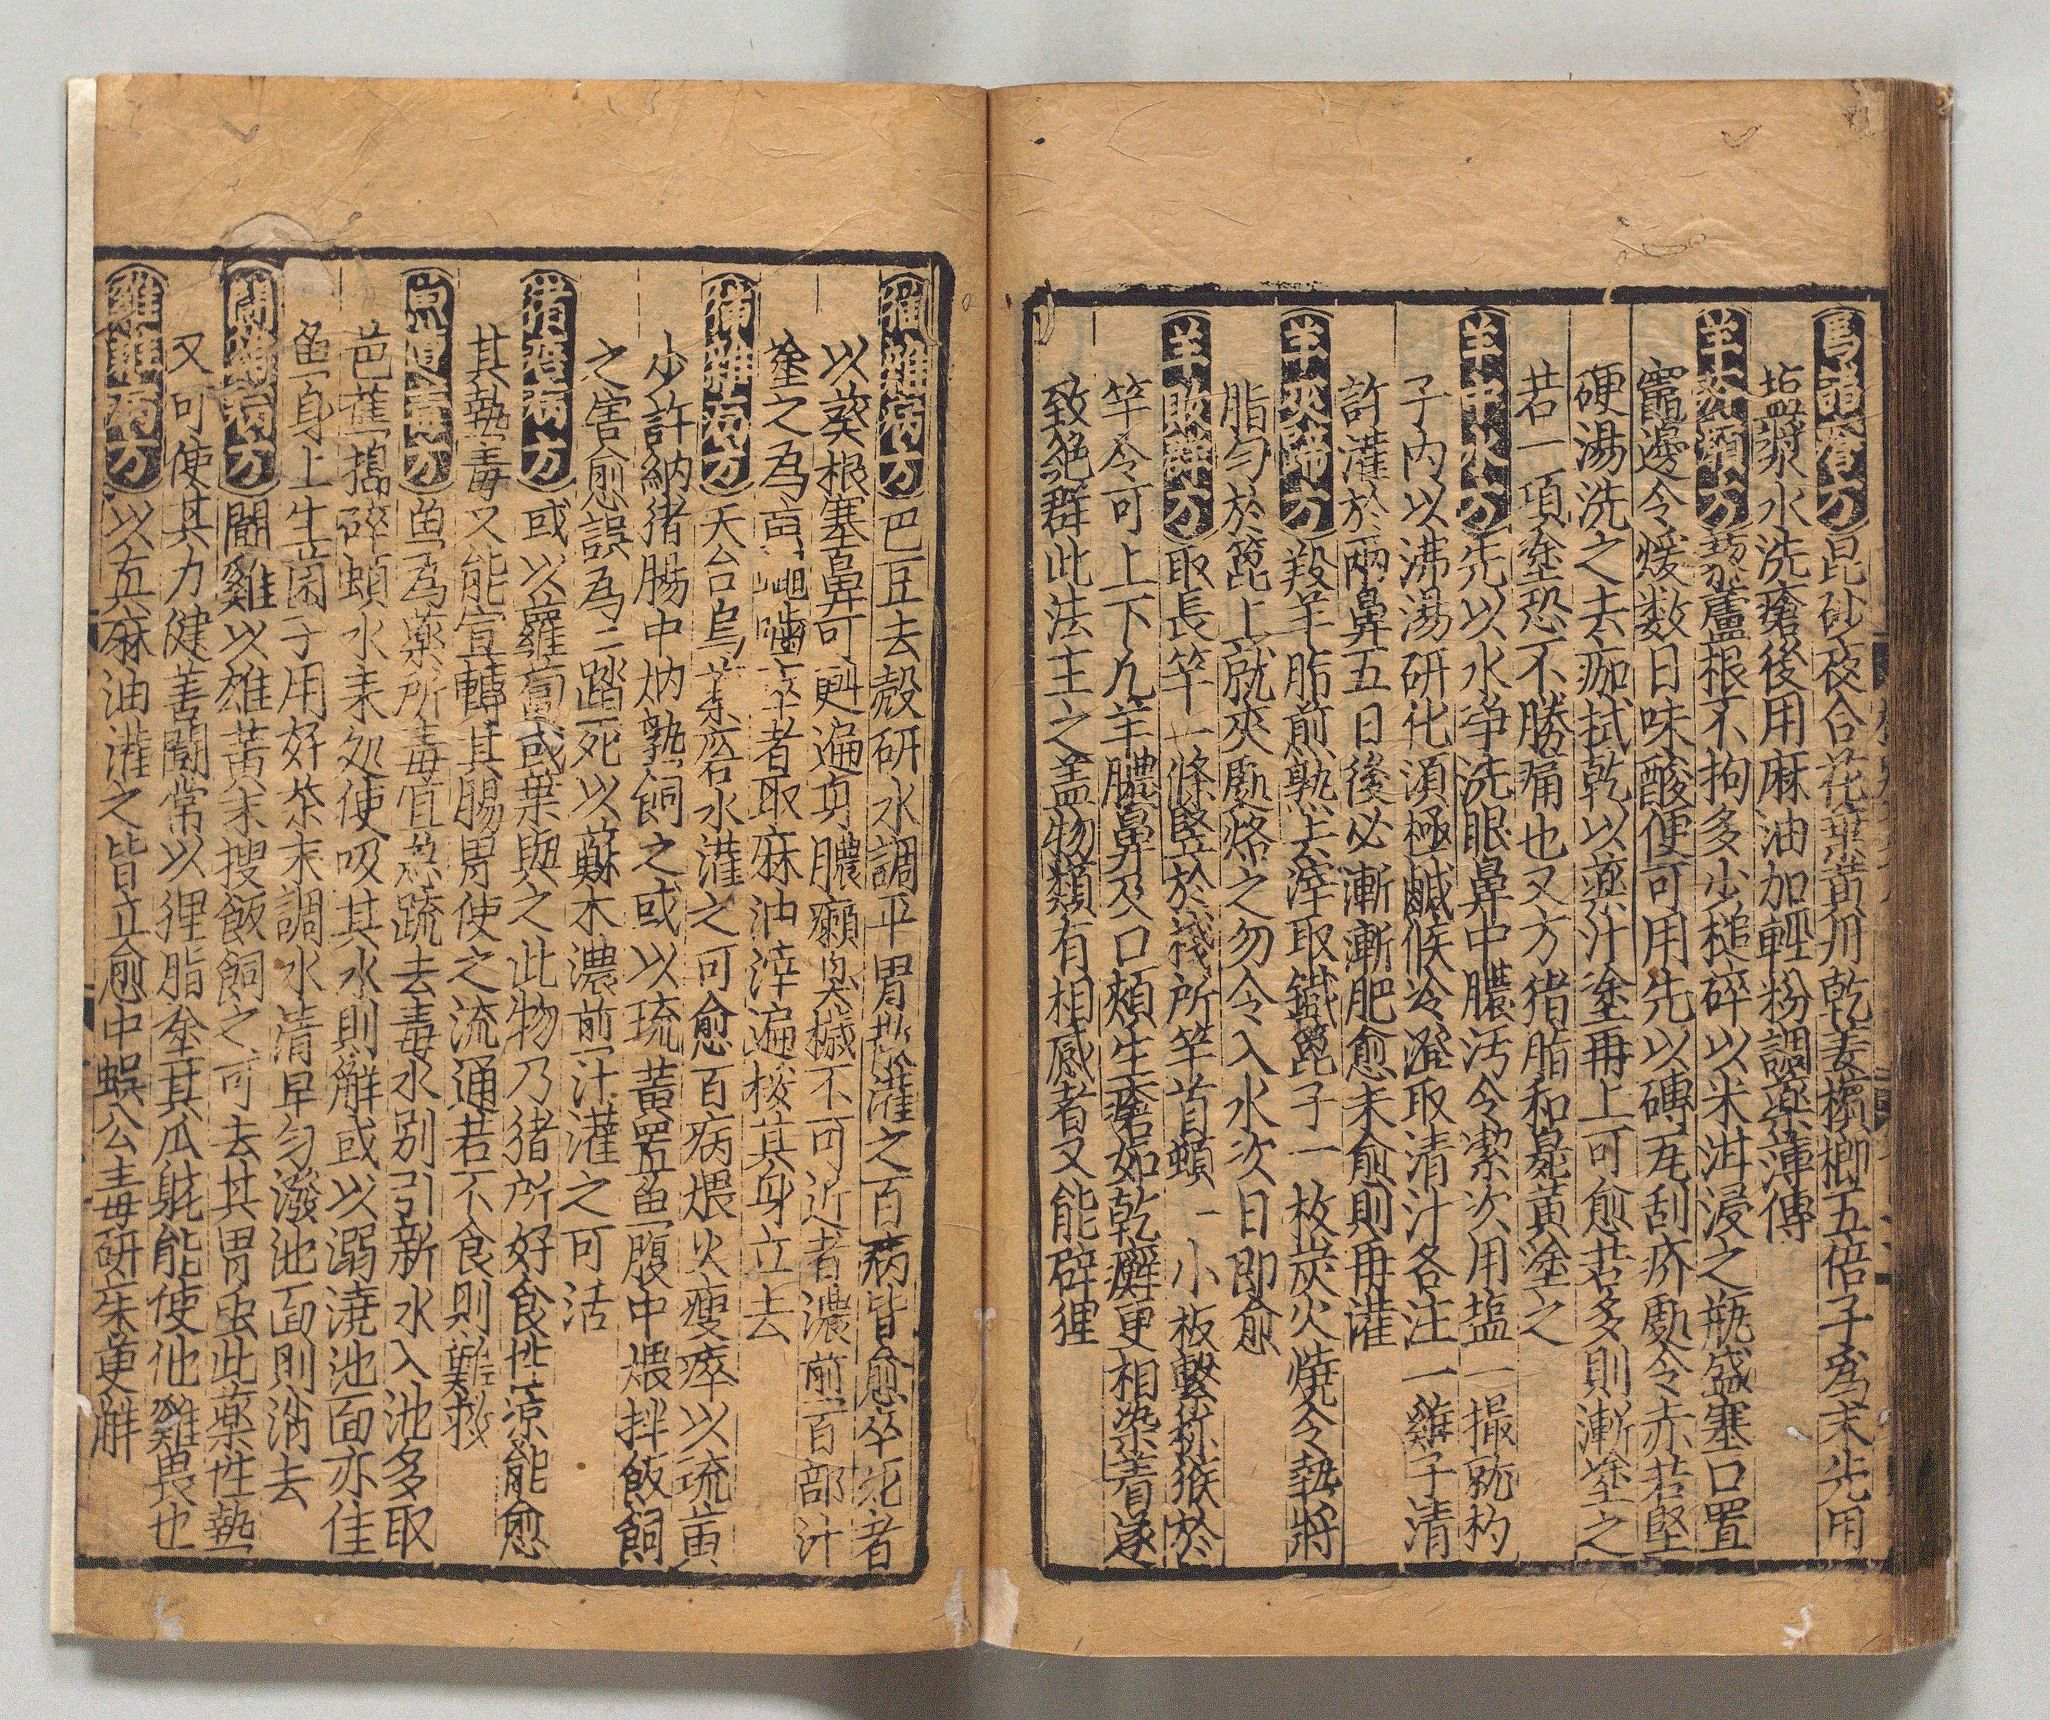 馬諸瘡方 昆砂夜合花葉黄丹乾姜檳榔五倍子爲末先用
塩漿水洗瘡後用麻油加輕粉調藥薄傅
羊疥癩方 藜蘆根不拘多少槌碎以米泔浸之瓶盛塞口置
竈邊令煖数日味酸便可用先以磚瓦刮疥處令赤若堅
硬湯洗之去痂拭乾以藥汁塗再上可愈若多則漸塗之
若一項塗恐不勝痛也又方猪脂和臭黄塗之
羊中水方 先以水净洗眼鼻中膿汚令潔次用塩一撮就杓
子内以沸湯研化湏極鹹候冷澄取清汁各注一雞子清
許灌於兩鼻五日後必漸漸肥愈未愈則再灌
羊夾蹄方 羖羊脂煎熟去滓取鐵篦子一枚炭火燒令熱將
脂勻於篦上就夾處烙之勿令入水次日即愈
羊敗群方 取長竿一條竪於棧所竿首頓一小板繫猕猴於
竿令可上下凡羊膿鼻及口頰生瘡如乾癬更相染着遂
致絶群此法主之盖物類有相感者又能辟狸
猫雜病方 巴豆去殼研水調平胃散灌之百病皆愈卒死者
以葵根塞鼻可甦遍身膿癩臭穢不可近者濃煎百部汁
塗之爲
者取麻油滓遍梭其身立去
猫雜病方 天台烏藥磨水灌之可愈百病煨火瘦瘁以琉黄
少許納猪腸中炳熟飼之或以琉黄置魚腹中煨拌飯飼
之害愈誤爲二踏死以蘇木濃煎汁灌之可活
猪諸病方 或以蘿蔔或葉與之此物乃猪所好食性涼能愈
其熱毒又能宣轉其腸胃使之流通若不食則難救
魚遭毒方 魚爲藥所毒宜急疏去毒水别引新水入池多取
芭蕉搗碎頓水来処使吸其水則解或以溺澆池面亦佳
魚身上生菌子用好茶末調水清早勻潑池面則消去
鬪雞病方 鬪雞以雄黄末搜飯飼之可去其胃虫此藥性熱
又可使其力健善鬪常以狸脂塗其瓜毿能使他雞畏也
雞雜病方 以真麻油灌之皆立愈中蜈公毒研茱萸解